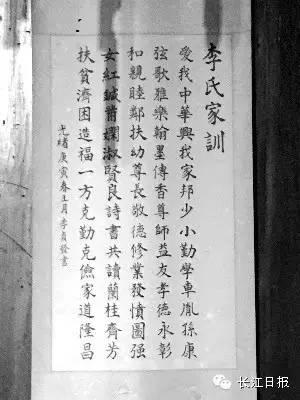 李氏家訓
愛我中華興我家邦少小勤學車胤孫康
弦歌雅樂翰墨傳香尊師益友孝德永彰
和親睦鄰扶幼尊長敬德修業發憤圖强
女紅鍼黹嫻淑賢良詩書共讀蘭桂齊芳
扶貧濟困造福一方克勤克儉家道隆昌
光緒庚寅春王月李貞發書
长江日报